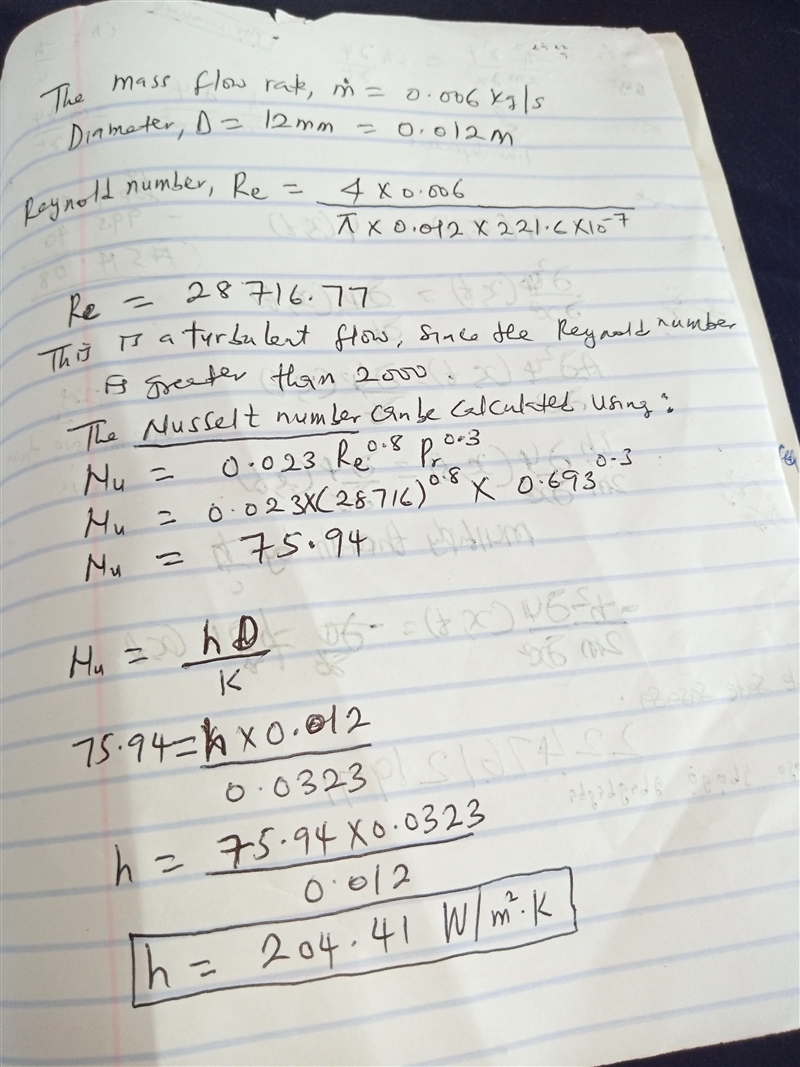 The mass flow rate, ṁ = 0.006 kg/s
Diameter, D = 12mm = 0.012m
Reynold number, Re = 4 × 0.006
π × 0.012 × 221.6 × 10⁻⁷
Re = 28716.77
This is a turbulent flow, since the Reynold number
is greater than 2000.
The Nusselt number can be calculated using:
Nu = 0.023 Re^0.8 Pr^0.3
Nu = 0.023×(28716)^0.8 × 0.693^0.3
Nu = 75.94
Nu = hD
K
75.94 = h × 0.012
0.0323
h = 75.94 × 0.0323
0.012
h = 204.41 W/m²·K